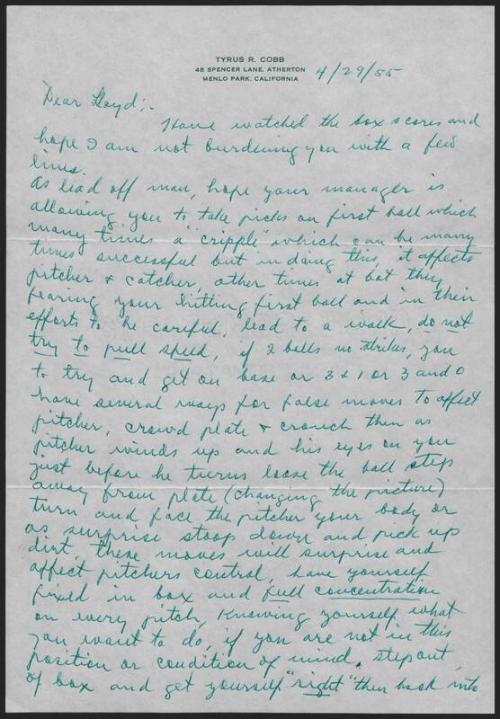 TYRUS R. COBB
48 SPENCER LANE, ATHERTON
MENLO PARK, CALIFORNIA
4/29/55
Dear Floyd;-
Have watched the box scores and
hope I am not burdening you with a few
lines.
As lead off man, hope your manager is
allowing you to take picks on first ball which
many times a "cripple" which can be many
times successful but in doing this, it affects
pitcher & catcher, other times at bat they
fearing your hitting first ball and in their
efforts to be careful, lead to a walk, do not
try to pull speed, if 2 balls no strikes, you
to try and get on base or 3 & 1 or 3 and 0
have several ways for false moves to affect
pitcher, crowd plate & crouch then as
pitcher winds up and his eyes on you
just before he turns loose the ball step
away from plate (changing the picture)
turn and face the pitcher your body or
as surprise stoop down and pick up
dirt, these moves will surprise and
affect pitchers control, have yourself
fixed in box and full concentration
on every pitch, Knowing yourself what
you want to do, if you are not in this
position or condition of mind, step out
of box and get yourself "right" then back into